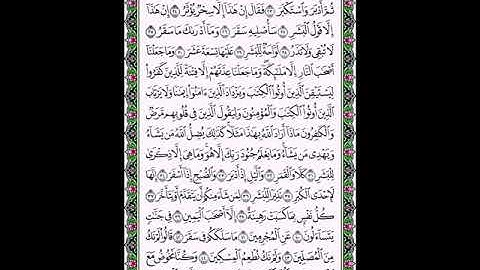 ثُمَّ أَدْبَرَ وَٱسْتَكْبَرَ ٢٣ فَقَالَ إِنْ هَٰذَآ إِلَّا سِحْرٌ يُؤْثَرُ ٢٤ إِنْ هَٰذَآ
إِلَّا قَوْلُ ٱلْبَشَرِ ٢٥ سَأُصْلِيهِ سَقَرَ ٢٦ وَمَآ أَدْرَىٰكَ مَا سَقَرُ ٢٧
لَا تُبْقِى وَلَا تَذَرُ ٢٨ لَوَّاحَةٌ لِّلْبَشَرِ ٢٩ عَلَيْهَا تِسْعَةَ عَشَرَ ٣٠ وَمَا جَعَلْنَآ
أَصْحَٰبَ ٱلنَّارِ إِلَّا مَلَٰٓئِكَةً وَمَا جَعَلْنَا عِدَّتَهُمْ إِلَّا فِتْنَةً لِّلَّذِينَ كَفَرُوا۟
لِيَسْتَيْقِنَ ٱلَّذِينَ أُوتُوا۟ ٱلْكِتَٰبَ وَيَزْدَادَ ٱلَّذِينَ ءَامَنُوٓا۟ إِيمَٰنًا وَلَا يَرْتَابَ
ٱلَّذِينَ أُوتُوا۟ ٱلْكِتَٰبَ وَٱلْمُؤْمِنُونَ وَلِيَقُولَ ٱلَّذِينَ فِى قُلُوبِهِم مَّرَضٌ
وَٱلْكَٰفِرُونَ مَاذَآ أَرَادَ ٱللَّهُ بِهَٰذَا مَثَلًا كَذَٰلِكَ يُضِلُّ ٱللَّهُ مَن يَشَآءُ
وَيَهْدِى مَن يَشَآءُ وَمَا يَعْلَمُ جُنُودَ رَبِّكَ إِلَّا هُوَ وَمَا هِىَ إِلَّا ذِكْرَىٰ
لِلْبَشَرِ ٣١ كَلَّا وَٱلْقَمَرِ ٣٢ وَٱلَّيْلِ إِذْ أَدْبَرَ ٣٣ وَٱلصُّبْحِ إِذَآ أَسْفَرَ ٣٤ إِنَّهَا
لَإِحْدَى ٱلْكُبَرِ ٣٥ نَذِيرًا لِّلْبَشَرِ ٣٦ لِمَن شَآءَ مِنكُمْ أَن يَتَقَدَّمَ أَوْ يَتَأَخَّرَ ٣٧
كُلُّ نَفْسٍۭ بِمَا كَسَبَتْ رَهِينَةٌ ٣٨ إِلَّآ أَصْحَٰبَ ٱلْيَمِينِ ٣٩ فِى جَنَّٰتٍ
يَتَسَآءَلُونَ ٤٠ عَنِ ٱلْمُجْرِمِينَ ٤١ مَا سَلَكَكُمْ فِى سَقَرَ ٤٢ قَالُوا۟ لَمْ نَكُ
مِنَ ٱلْمُصَلِّينَ ٤٣ وَلَمْ نَكُ نُطْعِمُ ٱلْمِسْكِينَ ٤٤ وَكُنَّا نَخُوضُ مَعَ